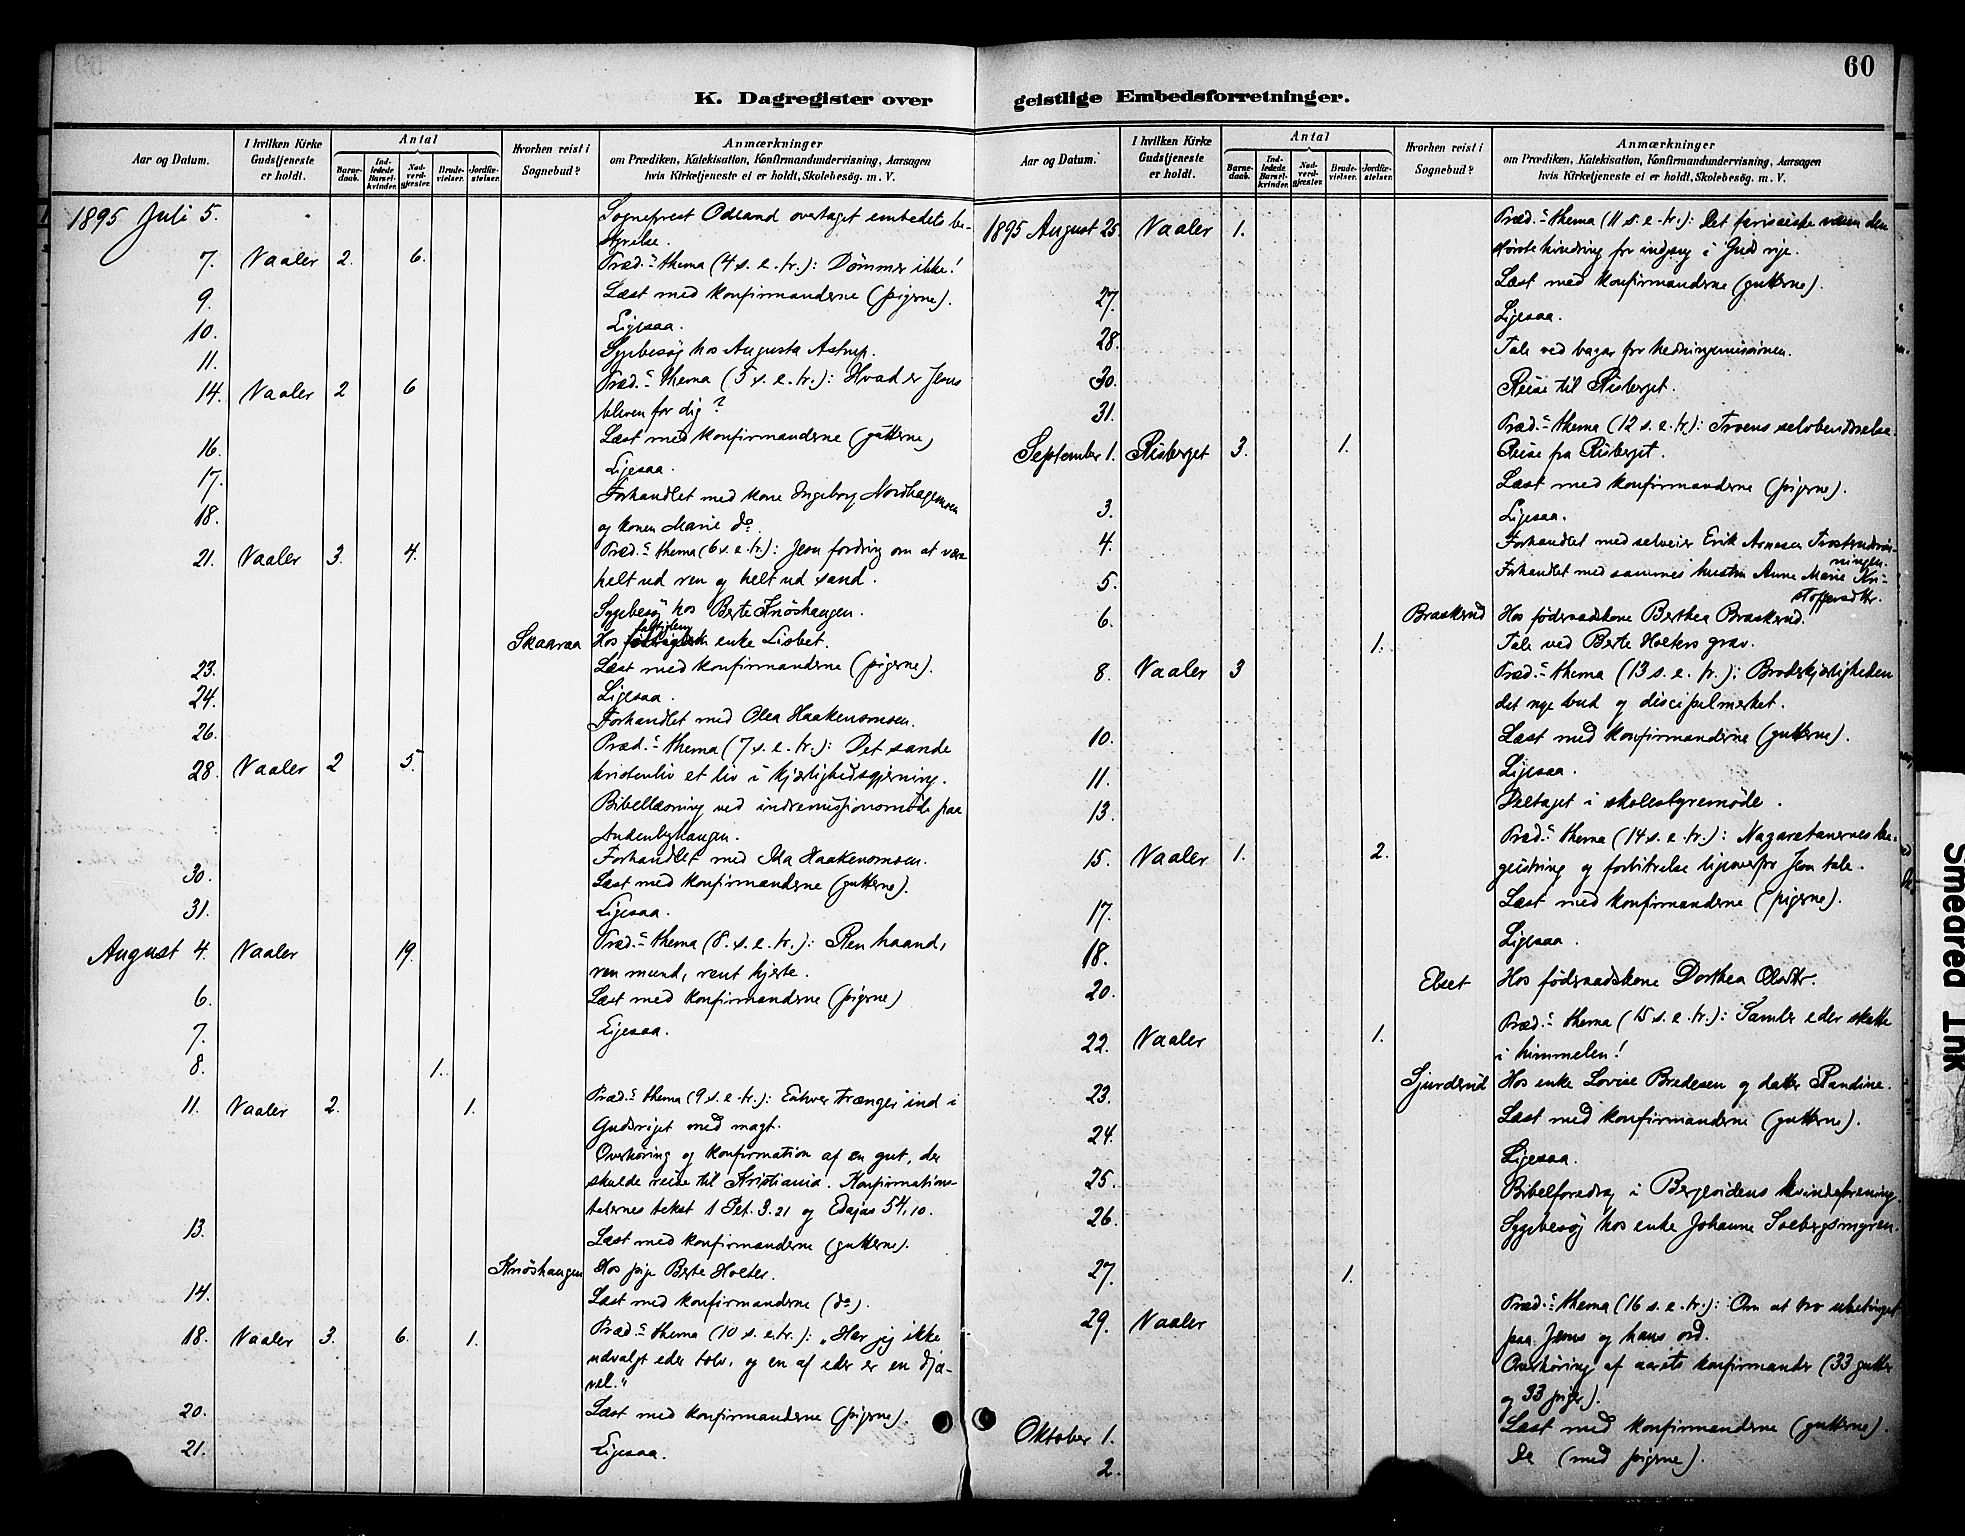 60
K. Dagregister over geistlige Embedsforretninger.
Aar og Datum. I hvilken Kirke Gudstjeneste er holdt. Antal Barnedaab. Indledede Barselkvinder. Nadverdgjester. Brudevielser. Jordfæstelser. Hvorhen reist i Sognebud? Anmærkninger om Prædiken, Katekisation, Konfirmandundervisning, Aarsagen hvis Kirketjeneste ei er holdt, Skolebesög. m. V.
1895 Juli 5. Sogneprest Odland overtaget embedets be-
styrelse.
7. Vaaler 2. 6. Præd.s thema (4 s. e. tr.): Dømmer ikke!
9. Læst med konfirmanderne (pigerne).
10. Ligesaa.
11. Sygebesøg hos Augusta Astrup.
14. Vaaler 2 6 Præd.s thema (5 s. e. tr.): Hvad er Jesus
bleven for dig?
16. Læst med konfirmanderne (gutterne)
17. Ligesaa.
18. Forhandlet med kone Ingeborg Nordhagenmoen
og konen Marie do.
21. Vaaler 3. 4. Præd.s thema (6 s. e. tr.): Jesu fordring om at være
helt ud ren og helt ud sand.
Sygebesøg hos Berte Knöshaugen.
Skaaraa Hos fattiglem enke Lisbet.
23. Læst med konfirmanderne (pigerne).
24. Ligesaa.
26. Forhandlet med Olea Haakensmoen.
28. Vaaler 2 5. Præd.s thema (7 s. e. tr.): Det sande
kristenliv et liv i kjærlighedsgjerning.
Bibellæsning ved indremissionsmöde paa
Andenbyhaugen.
30. Forhandlet med Ida Haakensmoen.
Læst med konfirmanderne (gutterne).
31. Ligesaa.
August 4. Vaaler 19. Præd.s thema (8. s. e. tr.): Ren haand,
ren mund, rent hjerte.
6. Læst med konfirmanderne (pigerne)
7. Ligesaa.
8. 1.
11. Vaaler 2. 1. Præd.s thema (9 s. e. tr.): Enhver trænger ind i
Gudsriget med magt.
Overhöring og konfirmation af en gut, der
skulde reise til Kristiania. Konfirmations-
talernes tekst 1 Pet. 3. 21 og Esajas 54, 10.
13. Læst med konfirmanderne (gutterne).
Knöshaugen Hos pige Berte Holter.
14. Læst med konfirmanderne (do).
18. Vaaler 3. 6. 1. Præd.s thema (10 s. e. tr.): „Har jeg ikke
udvalgt eder tolv, og en af eder er en djæ-
vel."
20. Læst med konfirmanderne (pigerne).
21. Ligesaa.
Aar og Datum. I hvilken Kirke Gudstjeneste er holdt. Antal Barnedaab. Indledede Barselkvinder. Nadverdgjester. Brudevielser. Jordfæstelser. Hvorhen reist i Sognebud? Anmærkninger om Prædiken, Katekisation, Konfirmandundervisning, Aarsagen hvis Kirketjeneste ei er holdt, Skolebesög. m. V.
1895 August 25 Vaaler 1. Præd.s thema (11 s. e. tr.): Det farisæiske væsen den
störste hindring for indgang i Guds rige.
27. Læst med konfirmanderne (gutterne).
28. Ligesaa.
30. Tale ved bazar for hedningemissionen.
31. Reise til Risberget.
September 1. Risberget 3. 1. Præd.s thema (12 s. e. tr.): Troens
Reise fra Risberget.
3. Læst med konfirmanderne (pigerne).
4. Ligesaa.
5. Forhandlet med selveier Erik Arnesen
Forhandlet med sammes hustru Anne Marie Kri-
stoffersdtr.
6. Braskerud Hos föderaadskone Berthea Braskerud.
1. Tale ved Berte Holters grav.
8. Vaaler 3 Præd.s thema (13 s. e. tr.): Broderkjærligheden
det nye bud og discipelmerket.
10. Læst med konfirmanderne (gutterne).
11. Ligesaa.
13. Deltaget i skolestyremöde.
15. Vaaler 1. 2. Præd.s thema (14 s. e. tr.): Nazaretanernes be-
geistring og forbitrelse ligeoverfor Jesu tale.
17. Læst med konfirmanderne (pigerne).
18. Ligesaa.
20. Elset Hos föderaadskone Dorthea Olsdtr.
22. Vaaler 1. Præd.s thema (15 s. e. tr.): Samler eder skatte
i himmelen!
23. Sjurderud Hos enke Lovise Bredesen og datter Randine.
24. Læst med konfirmanderne (gutterne).
25. Ligesaa.
26. Bibelforedrag i Bergesidens kvindeforening.
Sygebesøg hos enke Johanne Solbergsmyren.
27. 1.
29. Vaaler Præd.s thema (16 s. e. tr.): Om at tro ubetinget
paa Jesus og hans ord.
Overhöring af aarets konfirmander (33 gutter
og 33 piger).
Oktober 1. Læst med konfirmanderne (gutterne).
2. Do (med pigerne).
Smeared Ink